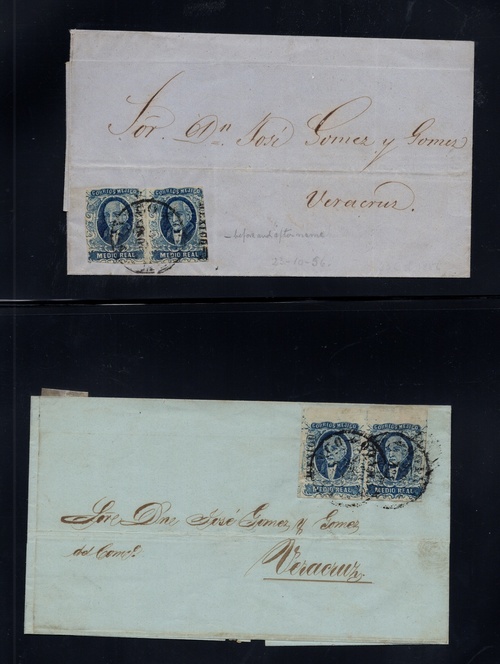 Sor. Dn. José Gomez y Gomez
Veracruz.
CORREOS MEJICO CORREOS MEJICO
MEXICO
MEDIO REAL MEDIO REAL
25-10-56.
CORREOS MEJICO CORREOS MEJICO
MEDIO REAL MEDIO REAL
Sor. Dn. José Gomez y Gomez
del Como.
Veracruz.